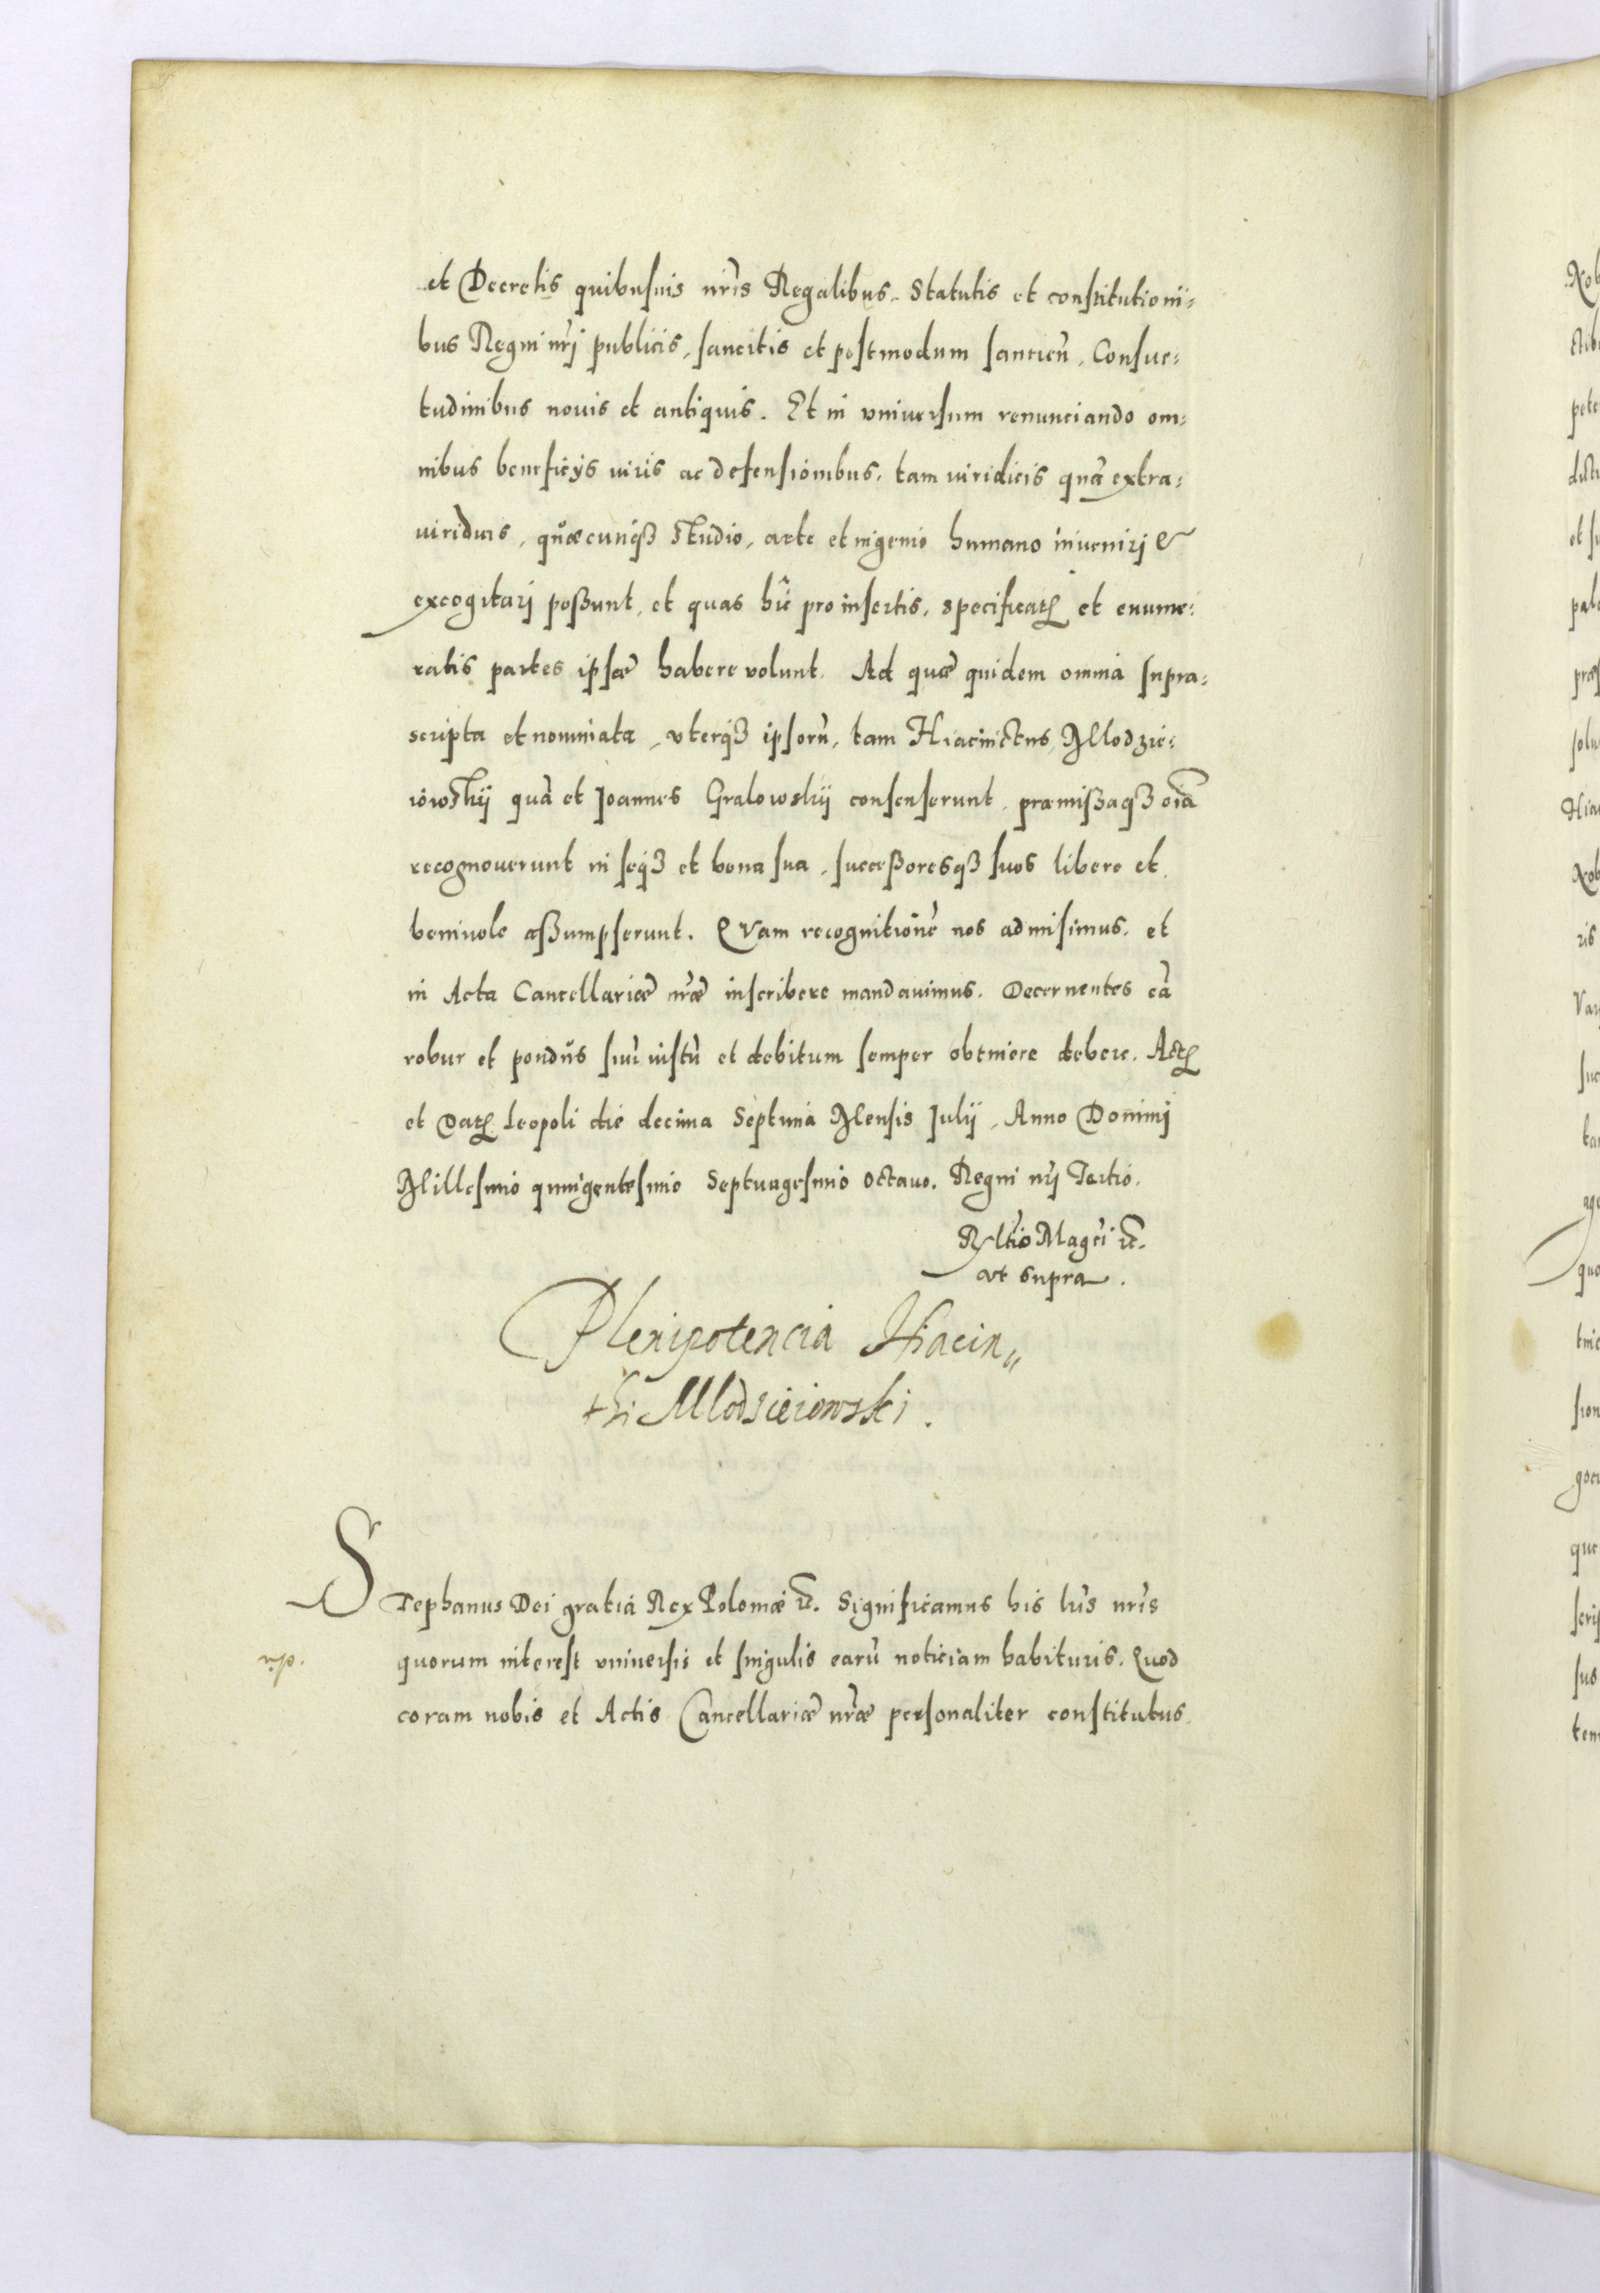 et Decretis quibusuis nr̃is Regalibus. Statutis et constitutioni=
bus Regni nr̃j publicis, sancitis et postmodum sancien̄, Consue=
tudinibus nouis et antiquis. Et in vniuersum renunciando om=
nibus beneficijs iuris ac defensionibus, tam iuridicis quā extra=
iuridicis, quæcunqȝ studio, arte et ingenio humano inuenirj &
excogitarj poßunt, et quas hîc pro insertis, specificatꝭ et enume=
ratis partes ipsæ habere volunt. Ad quæ quidem omnia supra=
scripta et nominata, vterqȝ ipsorū, tam Hiacinctus Mlodzie=
iowskij quā et Joannes Gralowskij consenserunt, præmißaqȝ oīa
recognouerunt in seqȝ et bona sua, succeßoresqȝ suos libere et
beniuole aßumpserunt. QVam recognitionē nos admisimus, et
in Acta Cancellariæ nr̃æ inscribere mandauimus. Decernentes eā
robur et pondus suū iustū et debitum semper obtinere debere. Actꝭ
et Datꝭ Leopoli die decima Septima Mensis Julij, Anno Dominj
Millesimo quingentesimo Septuagesimo octauo. Regni nr̃j Tertio.
Rel̃tio Mag̃ci &c.
vt supra.
Plenipotencia Hiacin„
thi Mlodzieiowski.
STephanus Dei gratia Rex Poloniæ &c. Significamus his lr̃is nr̃is
quorum interest vniuersis et singulis earū noticiam habituris. Quod
coram nobis et Actis Cancellariæ nr̃æ personaliter constitutus